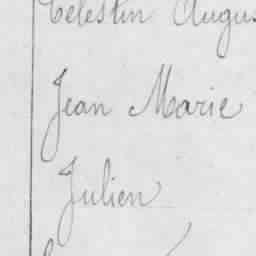 Celestin Augus
Jean Marie
Julien